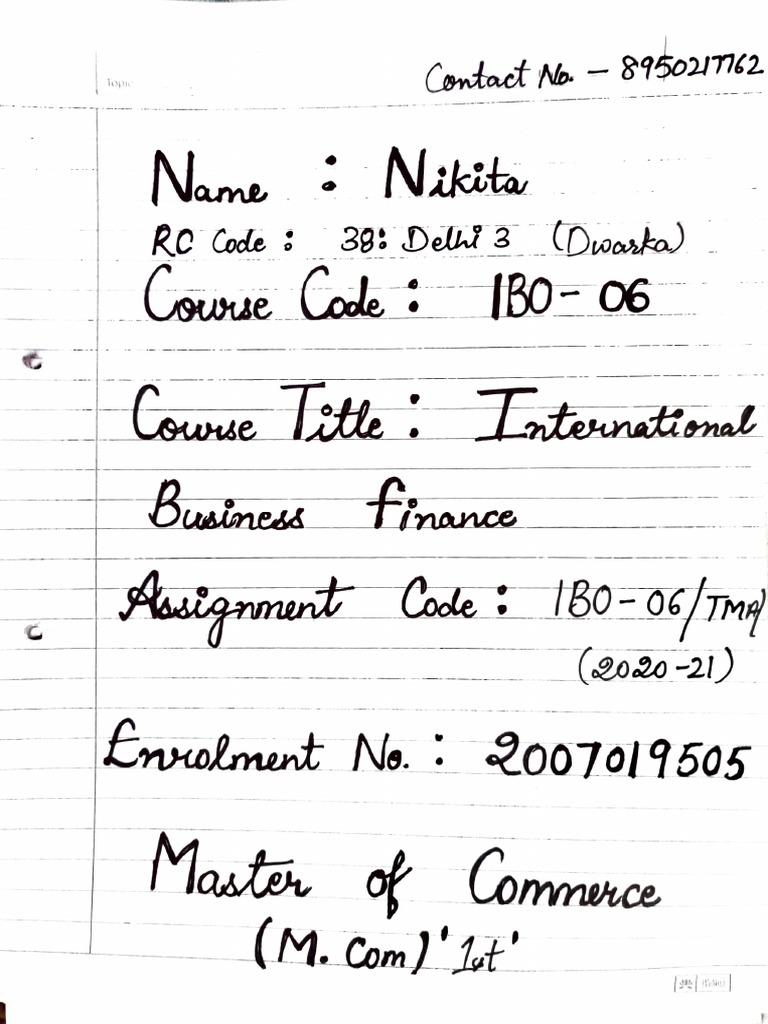 Topic
Contact No. - 8950217762
Name : Nikita
RC Code : 38: Delhi 3 (Dwarka)
Course Code : IBO - 06
Course Title : International
Business finance
Assignment Code : IBO - 06/TMA/
(2020-21)
Enrolment No. : 2007019505
Master of Commerce
(M. Com) '1st'